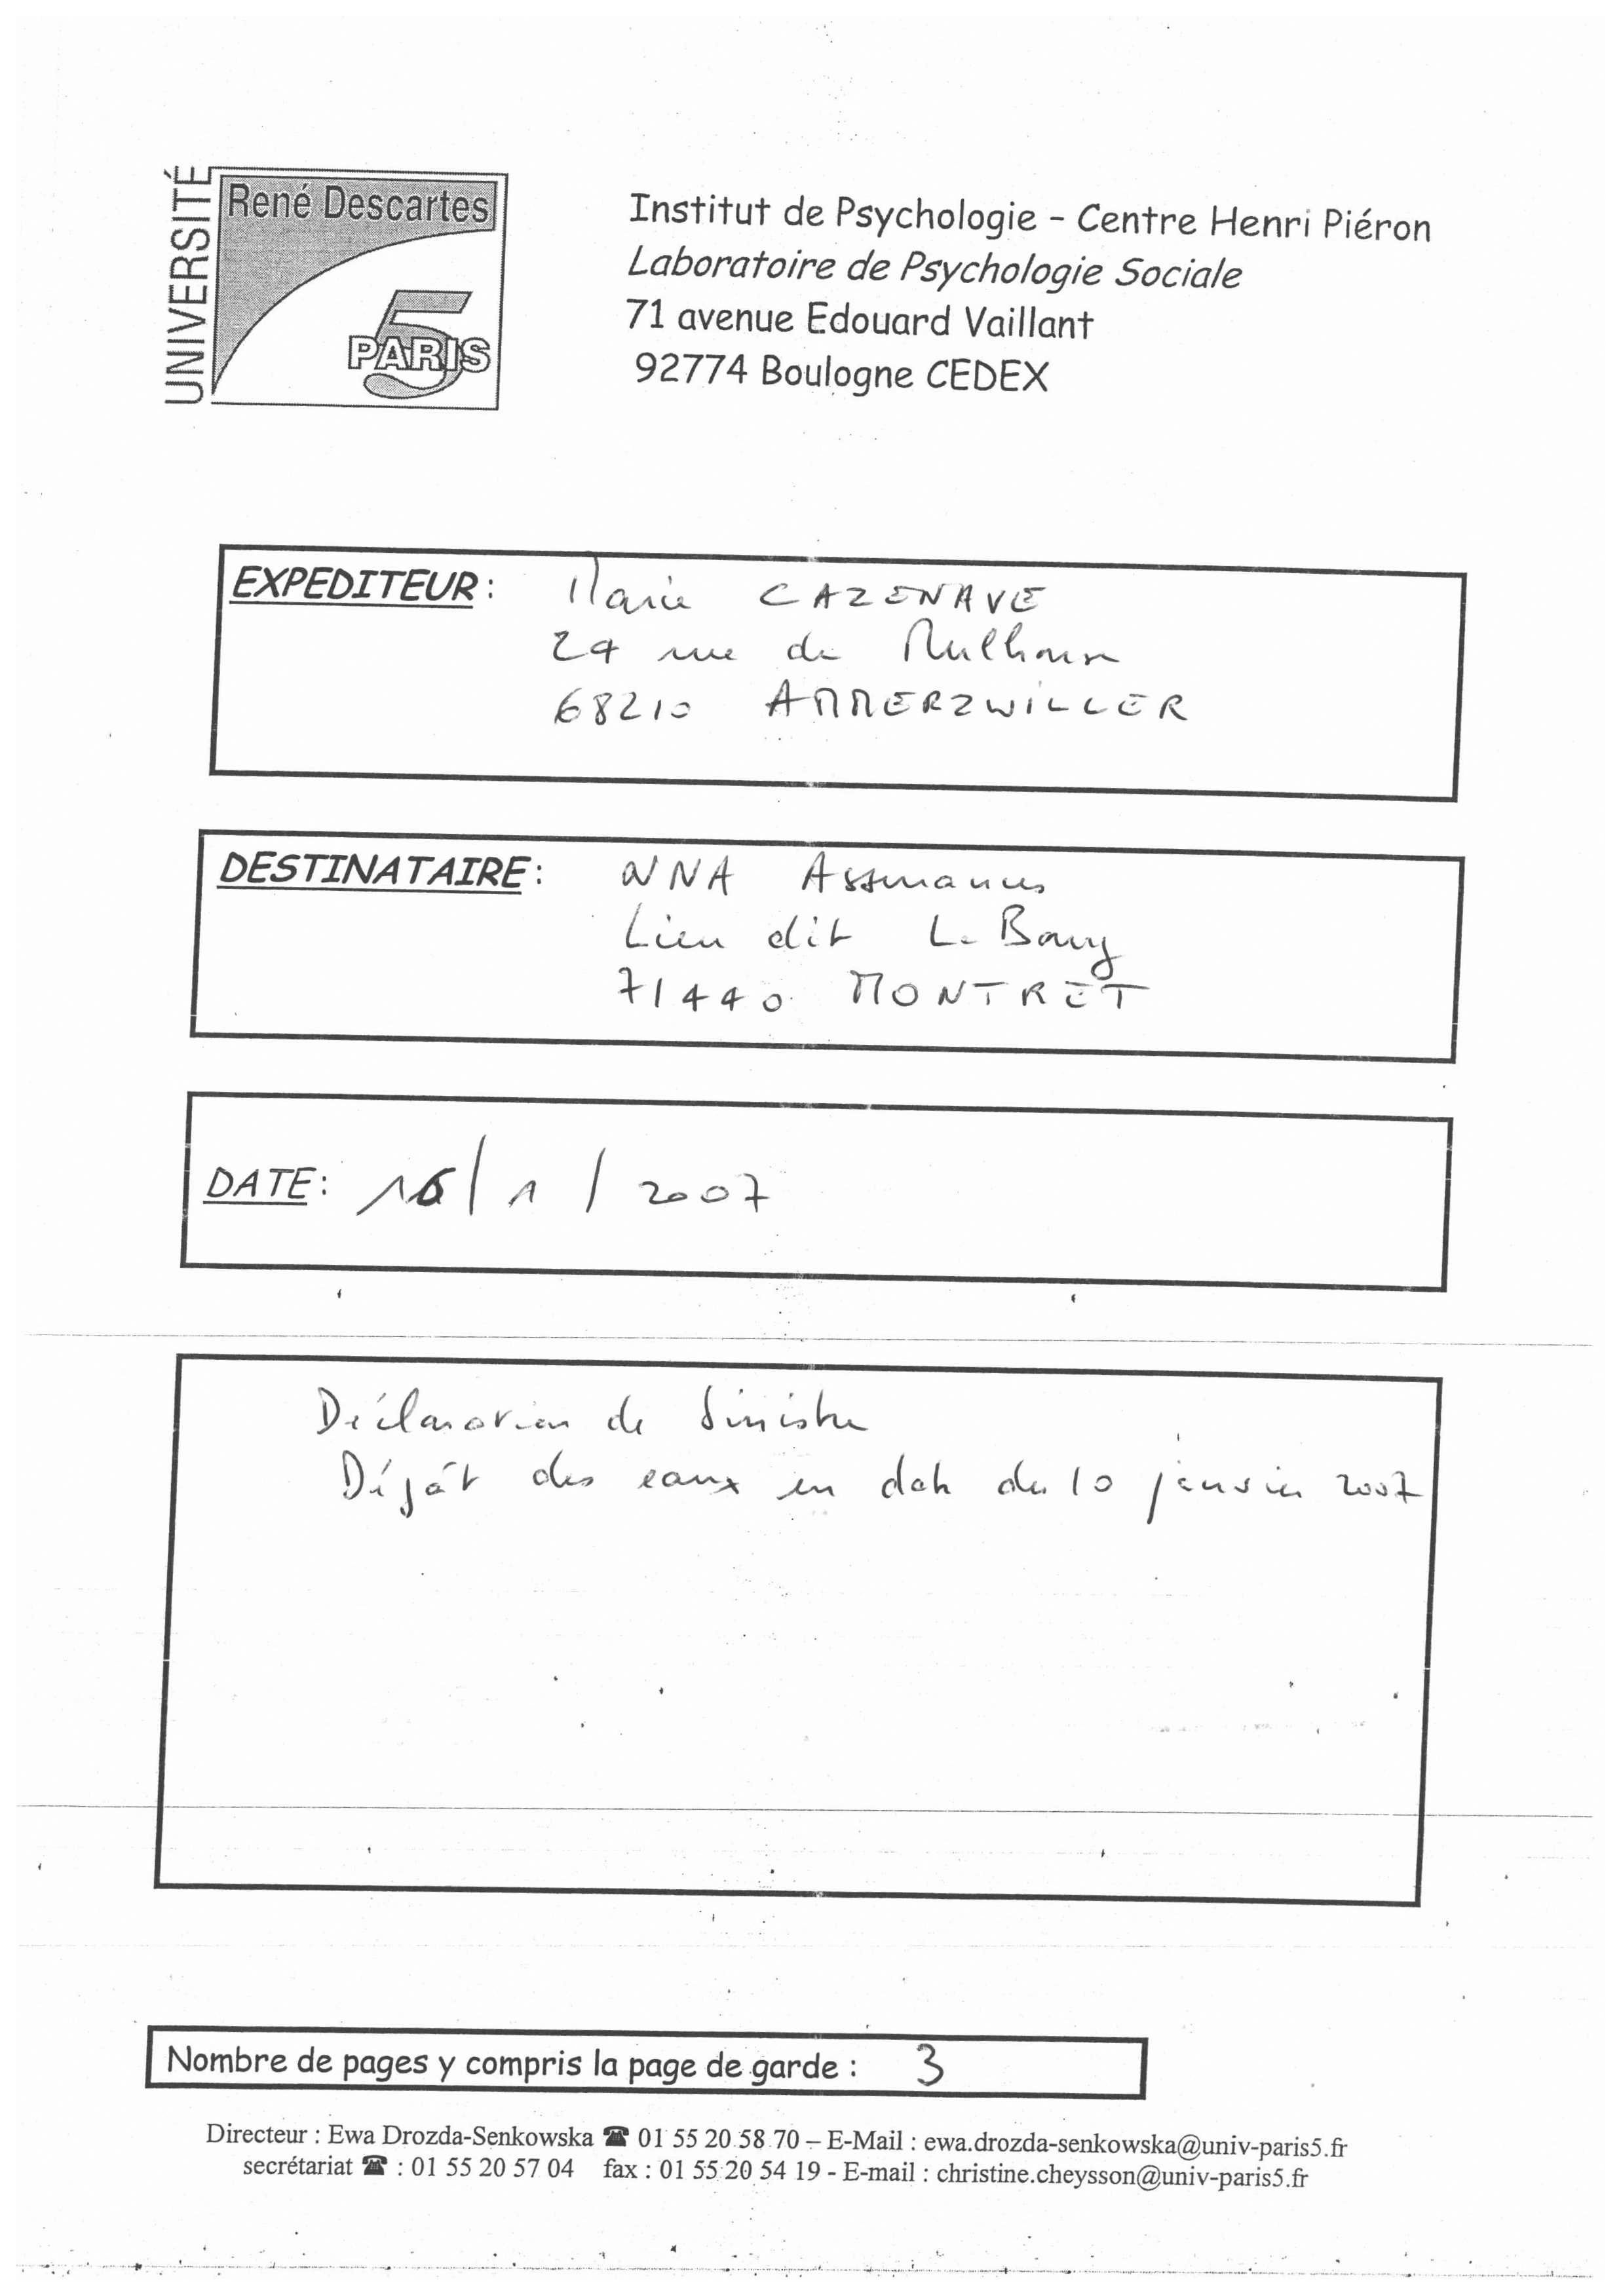 UNIVERSITÉ
René Descartes
PARIS 5
Institut de Psychologie - Centre Henri Piéron
Laboratoire de Psychologie Sociale
71 avenue Edouard Vaillant
92774 Boulogne CEDEX
EXPEDITEUR : Marie CAZENAVE
24 rue de Mulhouse
68210 AMMERZWILLER
DESTINATAIRE : NNA Assurances
Lieu dit Le Bourg
71440 MONTRET
DATE : 16/1/2007
Déclaration de Sinistre
Dégât des eaux en date du 10 janvier 2007
Nombre de pages y compris la page de garde : 3
Directeur : Ewa Drozda-Senkowska ☎ 01 55 20 58 70 – E-Mail : ewa.drozda-senkowska@univ-paris5.fr
secrétariat ☎ : 01 55 20 57 04 fax : 01 55 20 54 19 - E-mail : christine.cheysson@univ-paris5.fr